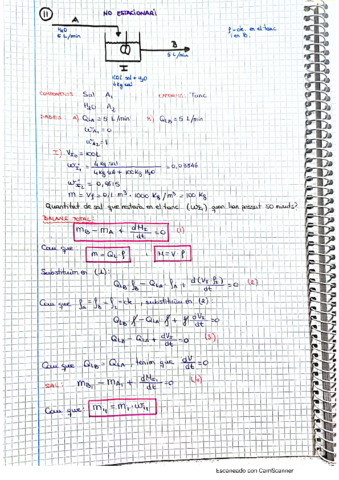 11
NO ESTACIONARI
A
H2O
5 L/min
B
5 L/min
ρ=cte. en el tanc
i en B.
I
100 L sal + H2O
4 kg sal
COMPONENTS: Sal A1
H2O A2
Tanc
DADES: A) QLA = 5 L/min B) QLB = 5 L/min
= 0
= 1
I) VI0 = 100 L
4 kg sal
4 kg sal + 100 kg H2O
= 0,03846
= 0,9615
m = Vρ = 0,1 m³ · 1000 kg/m³ = 100 kg
Quantitat de sal que restarà en el tanc quan han passat 50 minuts?
BALANÇ TOTAL:
mB - mA + dMI/dt = 0 (1)
Com que m = QL ρ i M = V · ρ
Substituïm en (1):
QLB · ρB - QLA · ρA + d(VI ρI)/dt = 0 (2)
Com que ρA = ρB = ρI = cte, substituïm en (2):
QLB ρ - QLA · ρ + ρ dVI/dt = 0
QLB - QLA + dVI/dt = 0 (3)
Com que QLB = QLA, tenim que dV/dt = 0
SAL: mB1 - mA1 + dMI1/dt = 0 (4)
Com que:
Escaneado con CamScanner